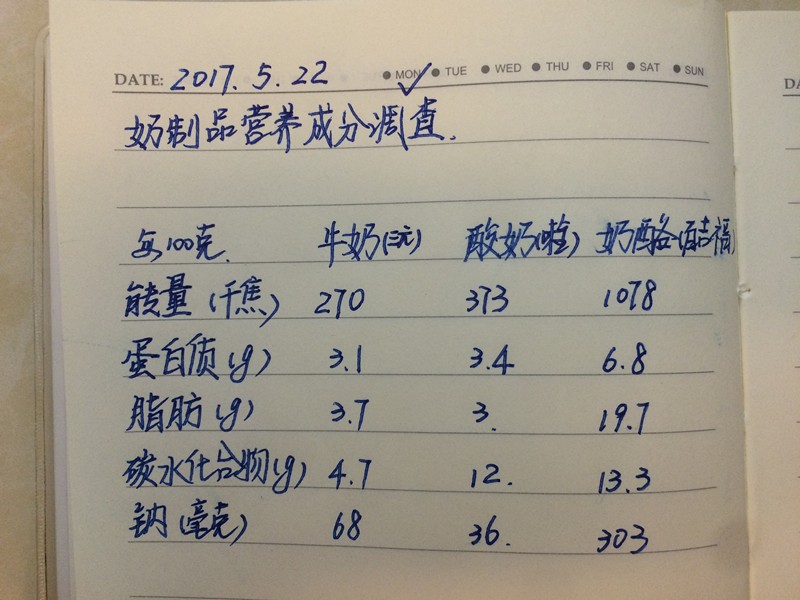 DATE: 2017.5.22 MON TUE WED THU FRI SAT SUN
奶制品营养成分调查.
每100克. 牛奶(三元) 酸奶() 奶酪(百吉福)
能量(千焦) 270 373 1078
蛋白质(g) 3.1 3.4 6.8
脂肪(g) 3.7 3. 19.7
碳水化合物(g) 4.7 12. 13.3
钠(毫克) 68 36. 303